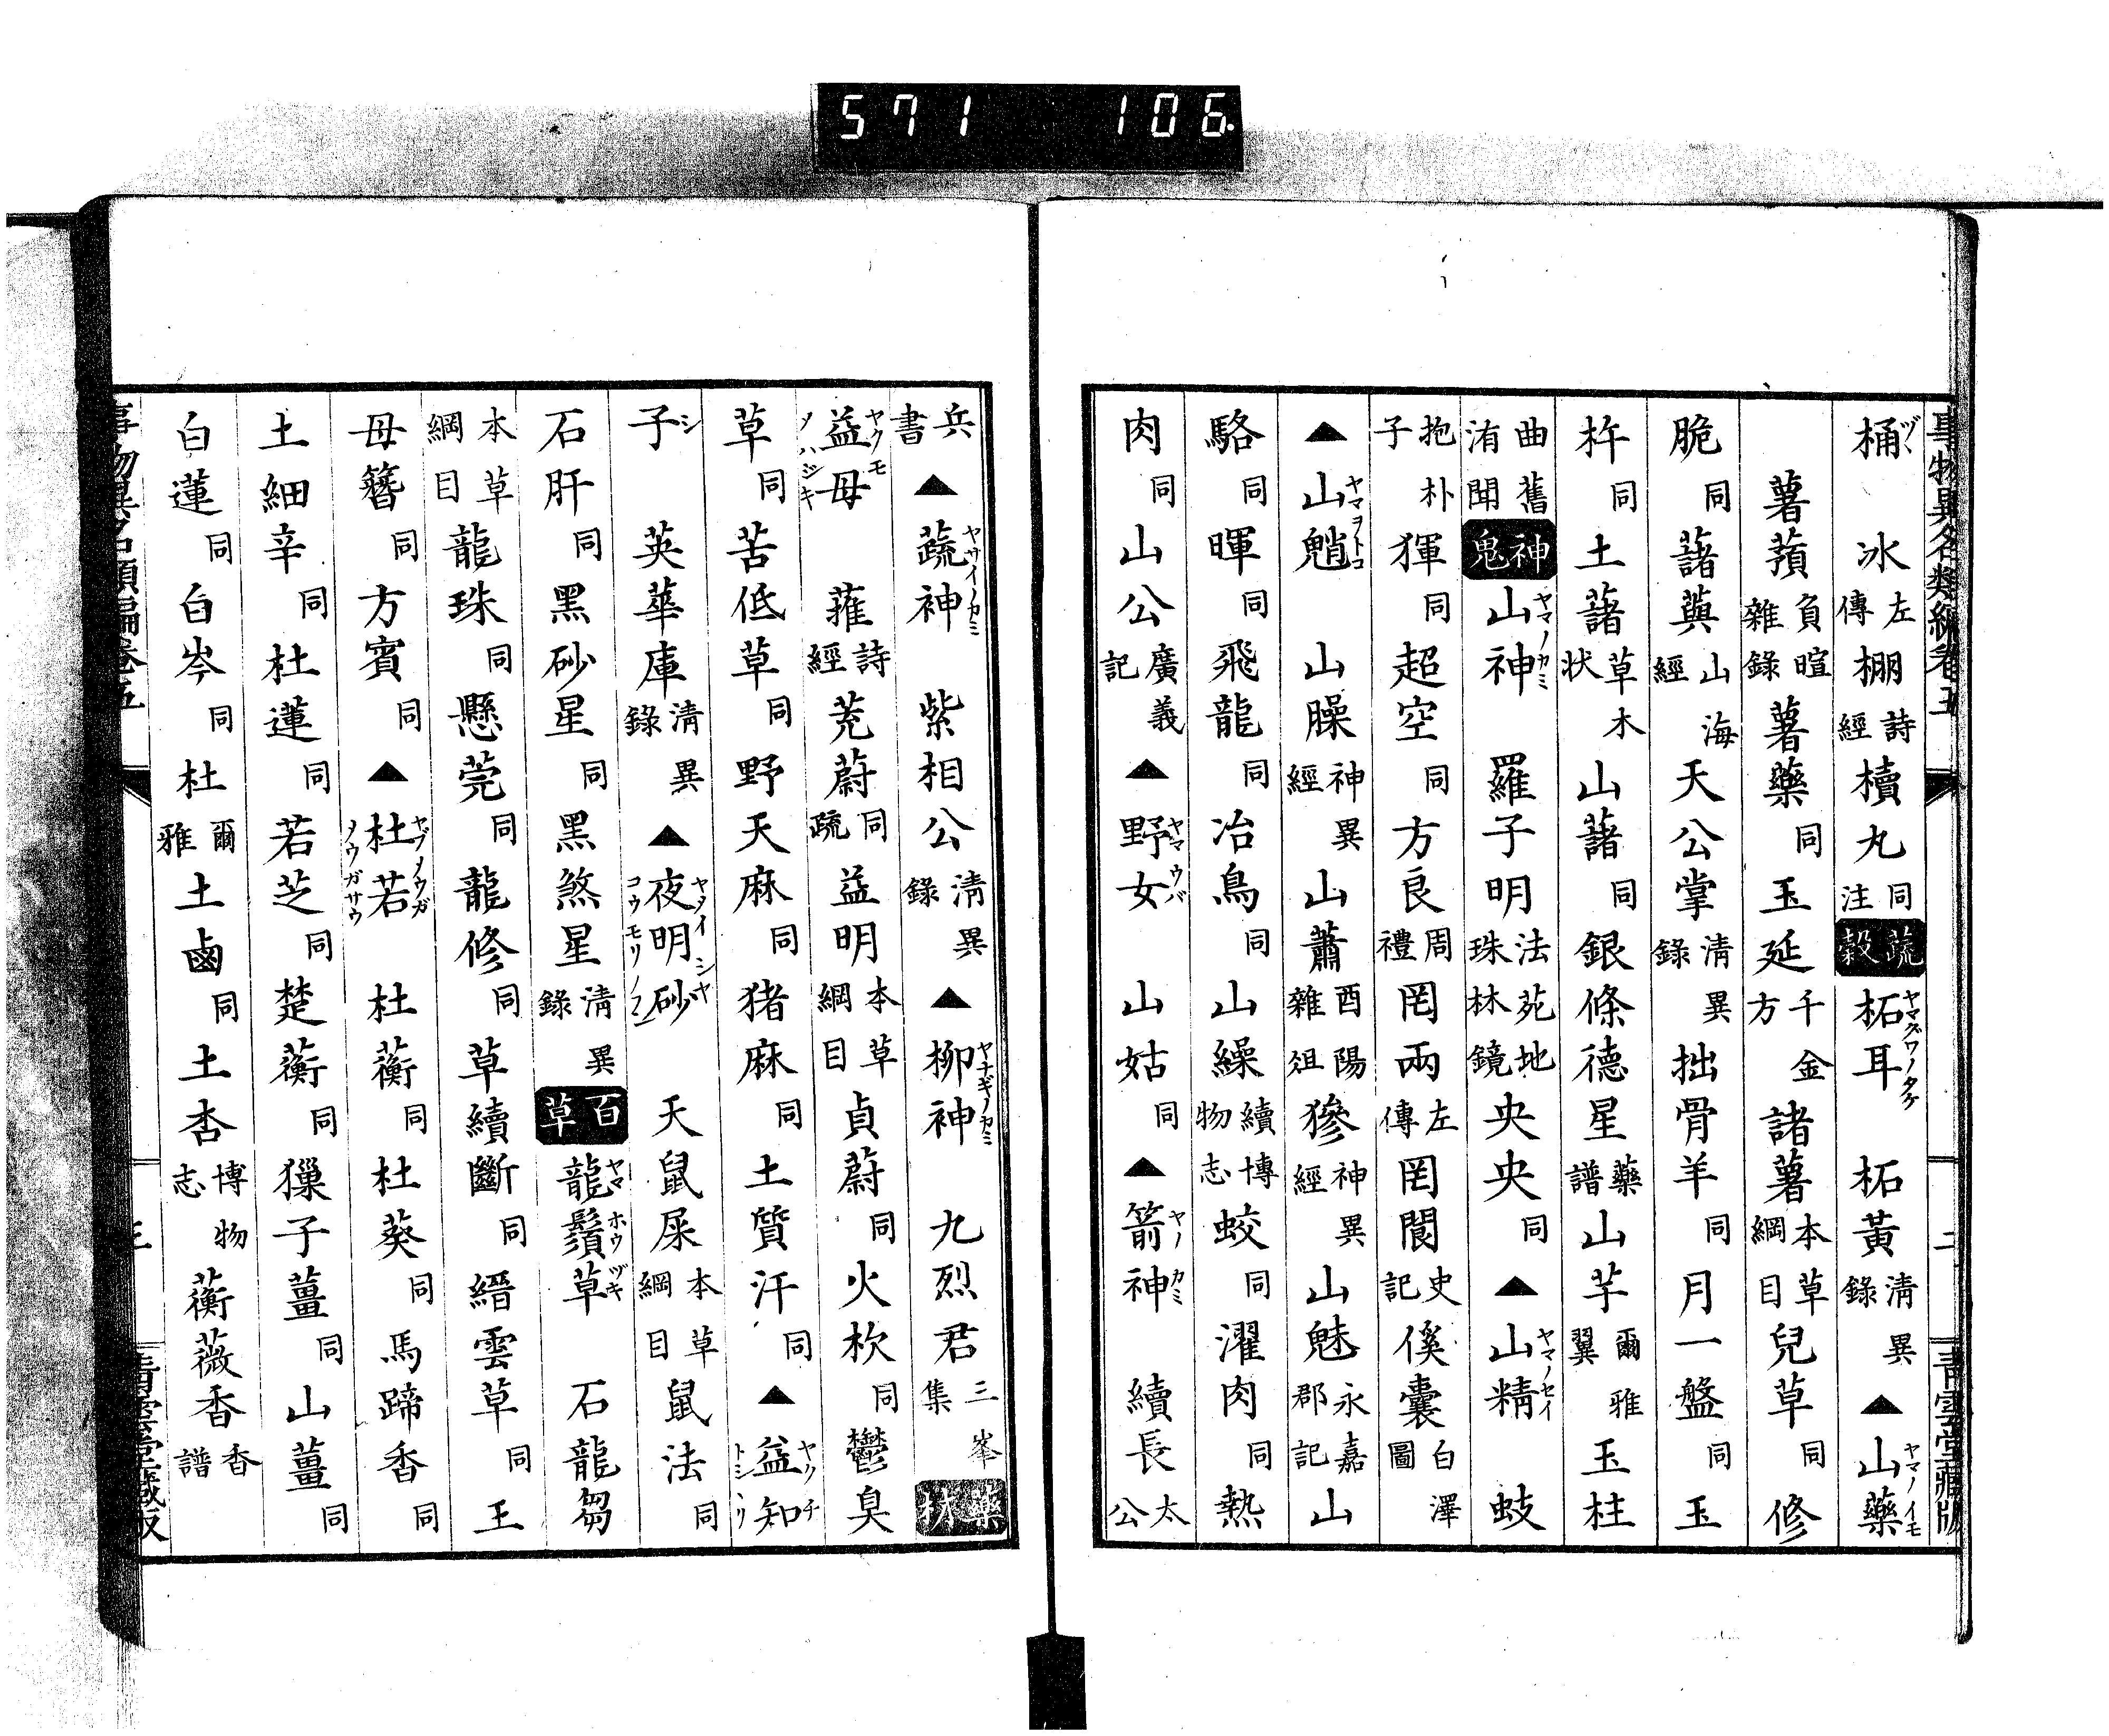 571 106.
事物異名類編卷五
二
青雲堂藏版
桶ヅヽ 冰左傳 棚詩經 櫝丸同注 蔬穀 柘耳ヤマグワノタケ 柘黃清異錄 ▲山藥ヤマノイモ
薯蕷負暄雜錄 薯藥同 玉延千金方 諸薯本草綱目 兒草同 修
脆同 藷藇山海經 天公掌清異錄 拙骨羊同 月一盤同 玉
杵同 土藷草木狀 山藷同 銀條德星藥譜 山芋爾雅翼 玉柱
曲洧舊聞 神鬼 山神ヤマノカミ 羅子明法苑珠林 央央地鏡同 ▲山精ヤマノセイ 蚑
抱朴子 㺔同 超空同 方良周禮 罔兩左傳 罔閬史記 傒囊白澤圖
▲山魈ヤマヲトコ 山臊神異經 山蕭酉陽雜俎 㺑神異經 山魅永嘉郡記 山
駱同 暉同 飛龍同 冶鳥同 山繰續博物志 蛟同 濯肉同 熱
肉同 山公廣義記 ▲野女ヤマウバ 山姑同 ▲箭神ヤノカミ 續長太公
兵書 ▲蔬神ヤサイノカミ 紫相公清異錄 ▲柳神ヤナギノカミ 九烈君三峯集 藥材
益母ヤクモノハシキ 蓷詩經 茺蔚同疏 益明本草綱目 貞蔚同 火杴同 鬱臭
草同 苦低草同 野天麻同 猪麻同 土質汗同 ▲益知ヤクチ
子シ 英華庫清異錄 ▲夜明砂ヤメイシヤ 天鼠屎本草綱目 鼠法同
石肝同 黑砂星同 黑煞星清異錄 百草 龍鬚草ヤマホウヅキ 石龍芻
本草綱目 龍珠同 懸莞同 龍修同 草續斷同 縉雲草同 王
母簪同 方賓同 ▲杜若ヤブメウガ 杜蘅同 杜葵同 馬蹄香同
土細辛同 杜蓮同 若芝同 楚蘅同 獵子薑同 山薑同
白蓮同 白岑同 杜爾雅 土鹵同 土杏博物志 蘅薇香香譜
事物異名類編卷五
三
青雲堂藏版